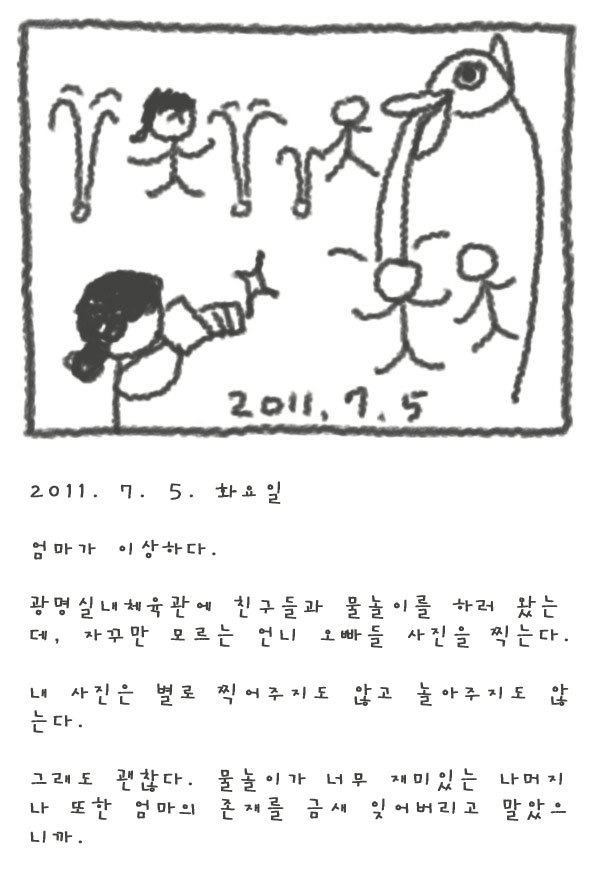 2011. 7. 5
2011. 7. 5. 화요일
엄마가 이상하다.
광명실내체육관에 친구들과 물놀이를 하러 왔는
데, 자꾸만 모르는 언니 오빠들 사진을 찍는다.
내 사진은 별로 찍어주지도 않고 놀아주지도 않
는다.
그래도 괜찮다. 물놀이가 너무 재미있는 나머지
나 또한 엄마의 존재를 금새 잊어버리고 말았으
니까.